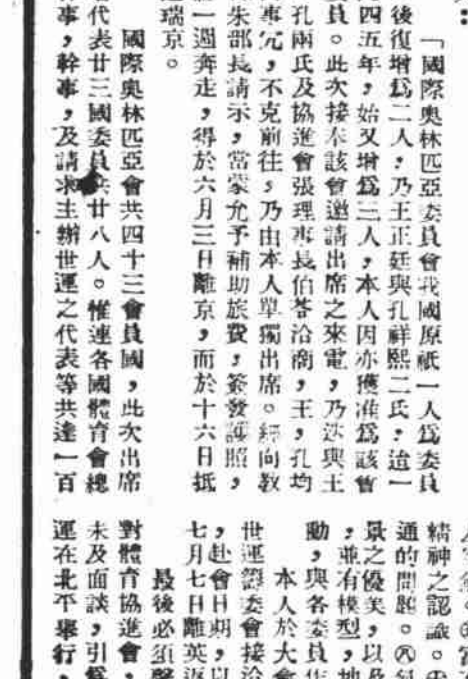 「國際奧林匹亞委員會我國原祇一人爲委員
後復增爲二人，乃王正廷與孔祥熙二氏：迨一
四五年，始又增爲三人，本人因亦獲准爲該會
員。此次接奉該會邀請出席之來電，乃迭與王
孔兩氏及協進會張理事長伯苓洽商，王，孔均
事冗，不克前往，乃由本人單獨出席。經向教
朱部長請示，當蒙允予補助旅費，簽發護照，
一週奔走，得於六月三日離京，而於十六日抵
瑞京。
國際奧林匹亞會共四十三會員國，此次出席
代表廿三國委員共廿八人。惟連各國體育會總
事，幹事，及請求主辦世運之代表等共達一百
精神之認識。
通的問題。
景之優美，以及
，並有模型，地
動，與各委員作
本人於大會
世運籌委會接洽
，赴會日期，以
七月七日離英返
最後必須聲
對體育協進會，
未及面談，引爲
運在北平舉行，